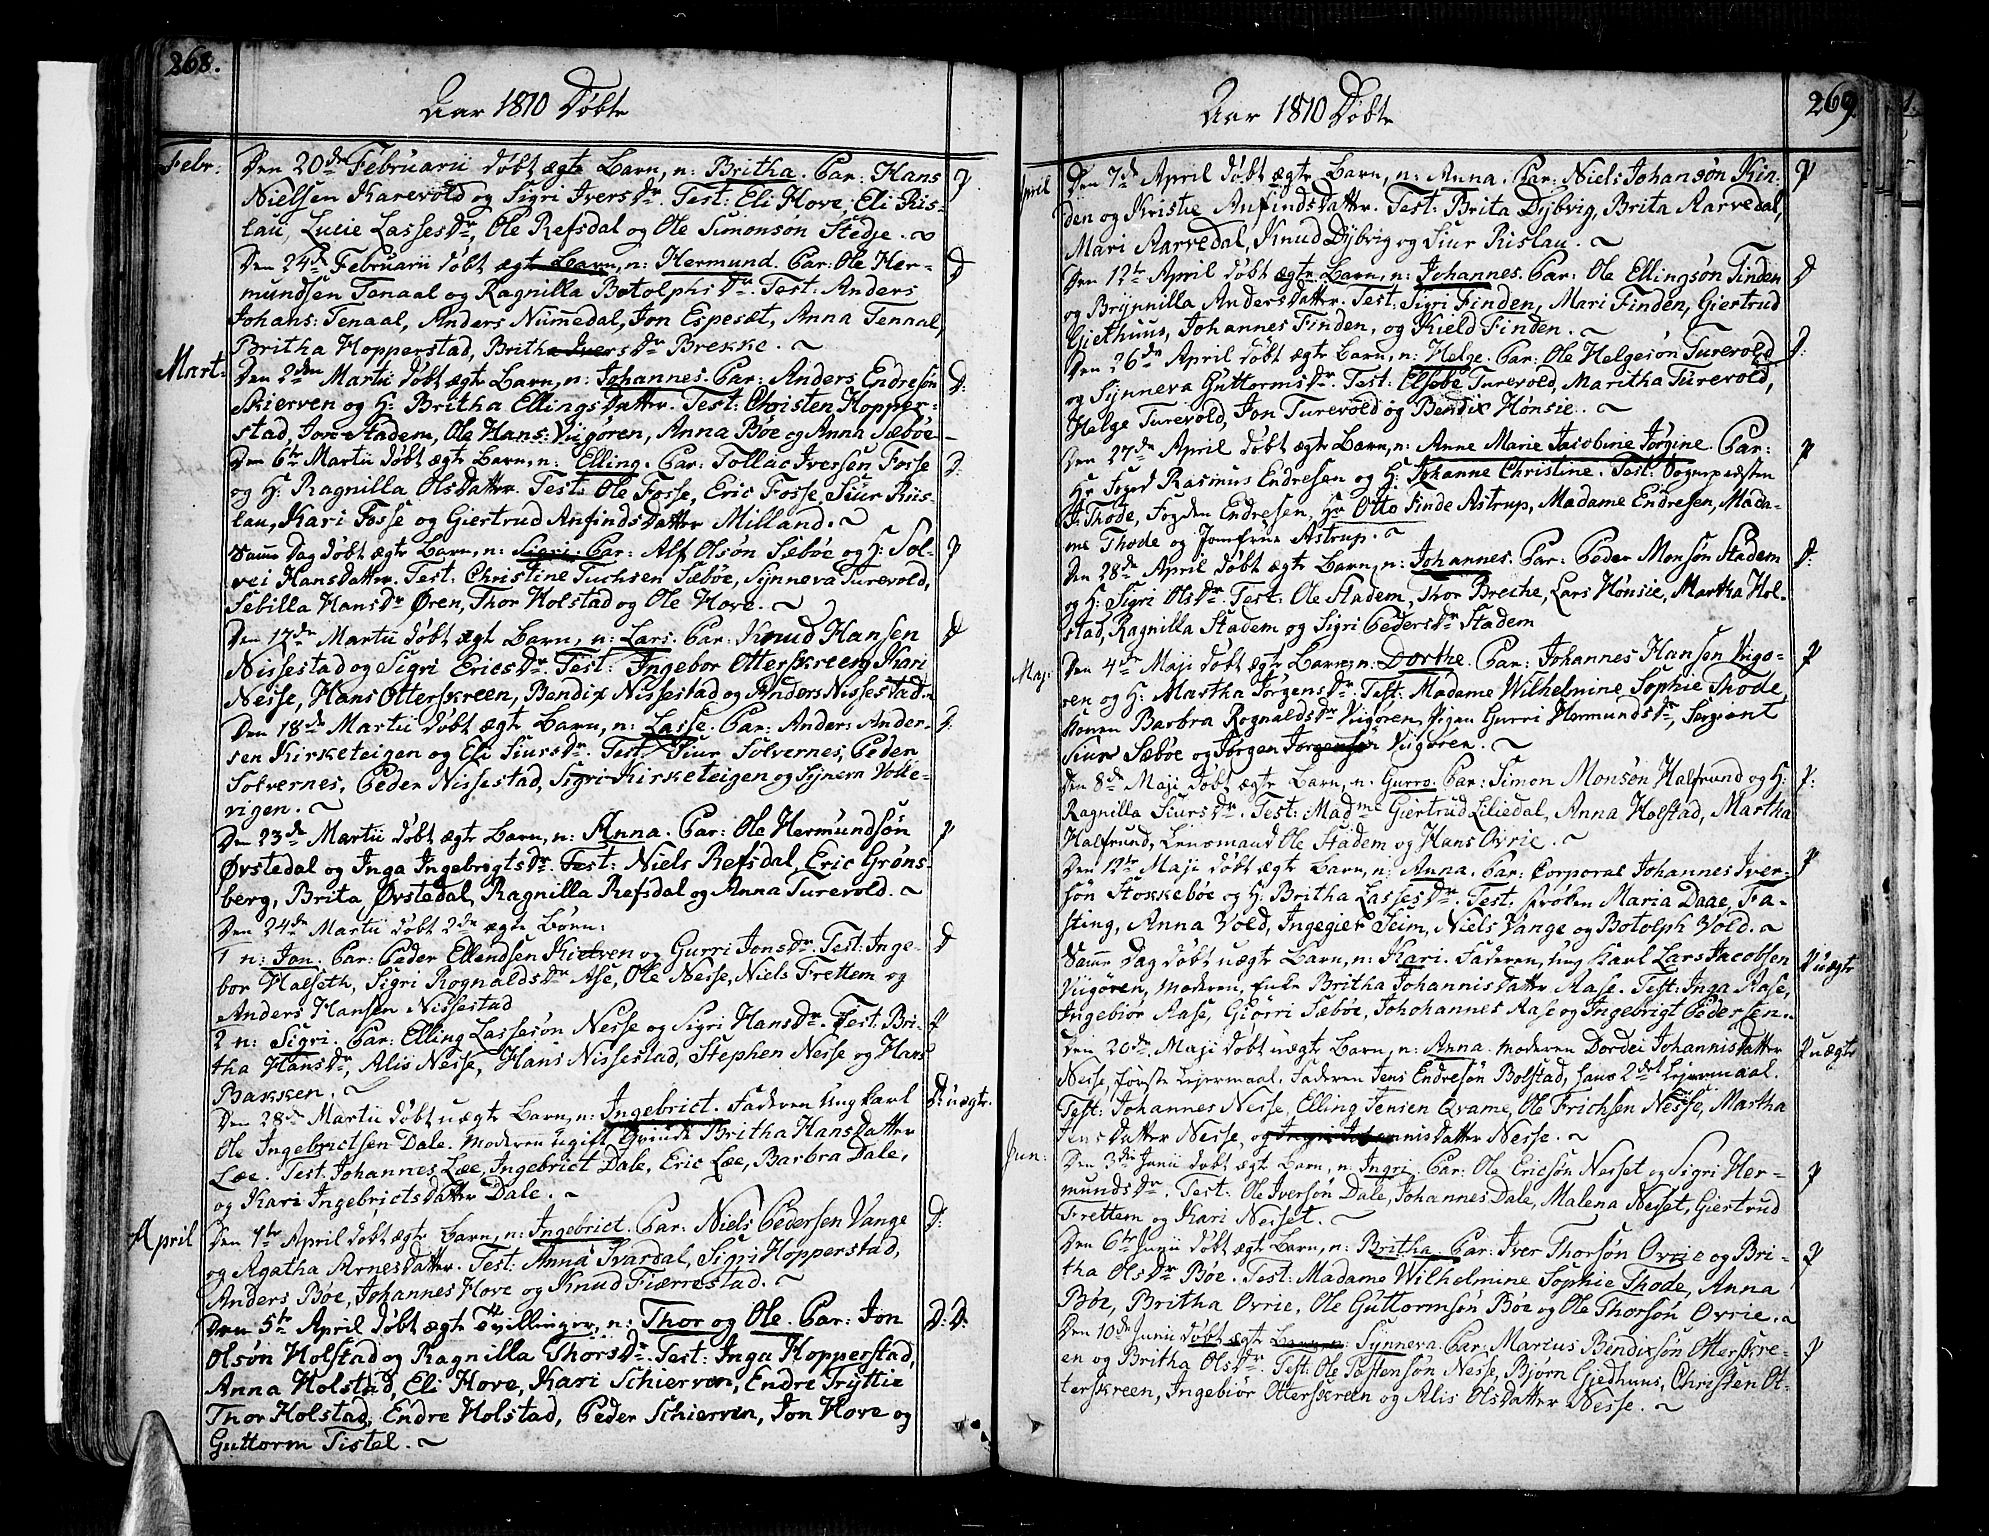 268.
Aar 1810 Døbte
Febr. Den 20de Februarii døbt ægte Barn, n: Britha. Par: Hans P
Nielsen Karevold og Sigri IversDr. Test: Eli Hove, Eli Ris-
lau, Lucie LassesDr, Ole Refsdal og Ole Simonsøn Stedje.
Den 24de Februarii døbt ægte Barn, n: Hermund. Par: Ole Her- D
mundsen Tenaal og Ragnilla BotolphsDr. Test: Anders
Johans: Tenaal, Anders Nummedal, Jon Espesæt, Anna Tenaal,
Britha Hopperstad, Britha IversDr Brekke.
Mart: Den 2den Martii døbt ægte Barn, n: Johannes. Par: Anders Endresøn D.
Skierven og H: Britha EllingsDatter. Test: Christen Hopper-
stad, Jon Stadem, Ole Hans: Viigøren, Anna Bøe og Anna Sæbøe
Den 6te Martii døbt ægte Barn, n: Elling. Par: Tollac Iversen Fosse D.
og H: Ragnilla OlsDatter. Test: Ole Fosse, Eric Fosse, Siur Riis-
lau, Kari Fosse og Giertrud AnfindsDatter Milland.
Samme Dag døbt ægte Barn, n: Sigri. Par: Alf Olsøn Sæbøe og H: Sol- P
vei HansDatter. Test: Christine Tuchsen Sæbøe, Synneva Turevold,
Sebilla HansDr Øren, Thor Holstad og Ole Hove.
Den 17de Martii døbt ægte Barn, n: Lars. Par: Knud Hansen D
Nissestad og Sigri EricsDr. Test: Ingebor Otterskreen, Kari
Nesse, Hans Otterskreen, Bendix Nissestad og Anders Nissestad.
Den 18de Martii døbt ægte Barn, n: Lasse. Par: Anders Ander- D.
sen Kirketeigen og Eli SiursDr. Test: Siur Solvernes, Peder
Solvernes, Peder Nissestad, Sigri Kirketeigen og Synneva Volle-
vigen.
Den 23de Martii døbt ægte Barn, n: Anna. Par: Ole Hermundsøn P
Øvstedal og Inga IngebrigtsDr. Test: Niels Refsdal, Eric Grøns-
berg, Brita Øvstedal, Ragnilla Refsdal og Anna Turevold.
Den 24de Martii døbt 2de ægte Børn:
1 n: Jon. Par: Peder Ellendsen Kielven og Gurri JonsDr. Test: Inge- D
bor Halseth, Sigri RognaldsDr Ase, Ole Nesse, Niels Frettem og
Anders Hansen Nissestad
2 n: Sigri. Par: Elling Lassesøn Nesse og Sigri HansDr. Test: Bri- P
tha HansDr, Aliis Nesse, Hans Nissestad, Stephen Nesse og Hans
Bakken.
Den 28de Martii døbt uægte Barn, n: Ingebrict. Faderen Ungkarl D: uægte.
Ole Ingebrictsen Dale. Moderen ugift Qvinde Britha HansDatter
Læe. Test: Johannes Læe, Ingebrict Dale, Eric Læe, Barbra Dale,
og Kari IngebrictsDatter Dale.
April Den 1te April døbt ægte Barn, n: Ingebrict. Par: Niels Pedersen Vange D:
og Agatha ArnesDatter. Test: Anna Svardal, Sigri Hopperstad,
Anders Bøe, Johannes Hove og Knud Fiærrestad.
Den 5te April døbt ægte Tvillinger, n: Thor og Ole. Par: Jon D: D:
Olsøn Holstad og Ragnilla ThorsDr. Test: Inga Hopperstad,
Anna Holstad, Eli Hove, Kari Schierven, Endre Tryttie
Thor Holstad, Endre Holstad, Peder Schierven, Jon Hove og
Guttorm Tistel.
269.
Aar 1810 Døbte
April Den 7de April døbt ægte Barn, n: Anna. Par: Niels Johansøn Kin- P
den og Kristie AnfindsDatter. Test: Brita Dybvig, Brita Aarvedal,
Mari Aarvedal, Knud Dybvig og Siur Rislau.
Den 12te April døbt ægte Barn, n: Johannes. Par: Ole Ellingsøn Finden D
og Brynnilla AndersDatter. Test: Sigri Finden, Mari Finden, Giertrud
Giethuus, Johannes Finden, og Kield Finden.
Den 26de April døbt ægte Barn, n: Helge. Par: Ole Helgesøn Turevold D:
og Synneva GuttormsDr. Test: Elsebe Turevold, Maritha Turevold,
Helge Turevold, Jon Turevold og Bendix Hønsie.
Den 27de April døbt ægte Barn, n: Anne Marie Jacobine Jørgine. Par: P
Hr Foged Rasmus Endresen og H: Johanne Christine. Test: Sognepræsten
Hr Thode, Fogden Endresen, Hr Otto Finde Astrup, Madame Endresen, Mada-
me Thode og Jomfrue Astrup.
Den 28de April døbt ægte Barn, n: Johannes. Par: Peder Monsøn Stadem D:
og H: Sigri OlsDr. Test: Ole Stadem, Thor Breche, Lars Hønsie, Martha Hol-
stad, Ragnilla Stadem og Sigri PedersDr Stadem
Maj: Den 4de Maji døbt ægte Barn, n: Dorthe. Par: Johannes Hansen Viigø- P
ren og H: Martha JørgensDr. Test: Madame Wilhelmine Sophie Thode,
Konen Barbra RognaldsDr Viigøren, Pigen Gurri HermundsDr, Sergiant
Siur Sæbøe og Jørgen Jørgensøn Viigøren.
Den 8de Maji døbt ægte Barn, n: Gurro. Par: Simon Monsøn Halfrund og H: P:
Ragnilla SiursDr. Test: Madme Giertrud Liliedal, Anna Holstad, Martha
Halfrund, Lensmand Ole Stadem og Hans Ovrie.
Den 12te Maji døbt ægte Barn, n: Anna. Par: Corporal Johannes Iver- P
søn Stokkebøe og H: Britha LassesDr. Test. Frøken Maria Daae, Fa-
sting, Anna Vold, Ingegier Seim, Niels Vange og Botolph Vold.
Samme Dag døbt uægte Barn, n: Kari. Faderen, Ung Karl Lars Jacobsen P uægte
Viigøren, Moderen, Enke Britha JohannisDatter Aase. Test: Inga Aase,
Ingebiør Aase, Giørri Sæbøe, Johohannes Aase og Ingebrigt Pedersen.
Den 20de Maji døbt uægte Barn, n: Anna. Moderen Dordei JohannisDatter P uægte
Nesse, første Lejermaal. Faderen Jens Endresøn Bolstad, hans 2det Lejermaal.
Test: Johannes Nesse, Elling Jensen Qvame, Ole Erichsen Nesse, Martha
JensDatter Nesse, og Inga JohannisDatter Nesse.
Jun: Den 3die Junii døbt ægte Barn, n: Ingri. Par: Ole Ericsøn Nesset og Sigri Her- P
mundsDr. Test: Ole Iversøn Dale, Johannes Dale, Malena Nesset, Giertrud
Frettem og Kari Nesset.
Den 6te Junii døbt ægte Barn, n: Britha. Par: Iver Thorsøn Ovrie og Bri- P
tha OlsDr Bøe. Test: Madame Wilhelmine Sophie Thode, Anna
Bøe, Britha Ovrie, Ole Guttormsøn Bøe og Ole Thorsøn Ovrie.
Den 10de Junii døbt ægte Barn, n: Synneva. Par: Marius Bendixsøn Otterskre- P
en og Britha OlsDr. Test: Ole Tostensøn Nesse, Bjørn Giedhuus, Christen Ot-
terskreen, Ingebiør Otterskreen og Alis OlsDatter Nesse.